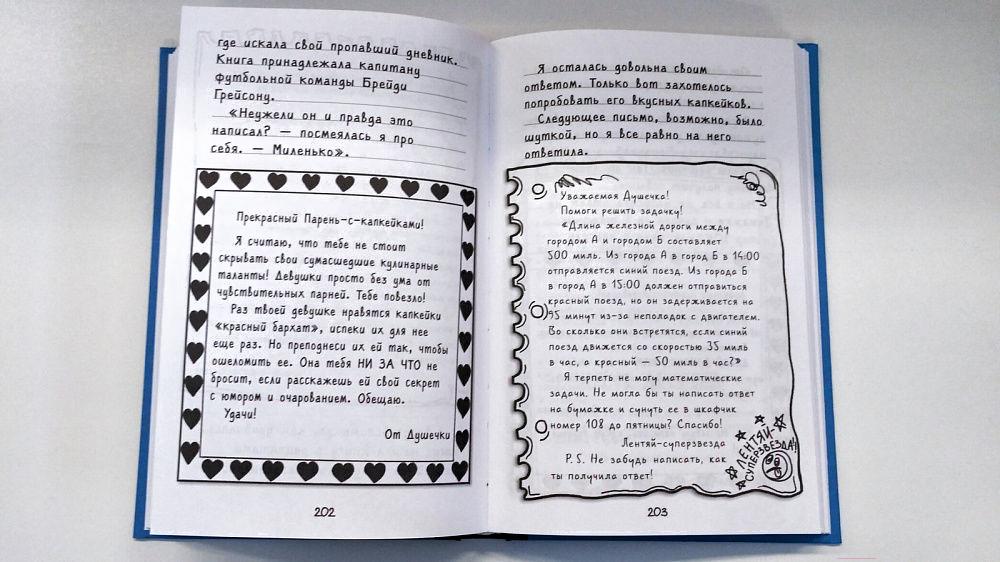 где искала свой пропавший дневник.
Книга принадлежала капитану
футбольной команды Брейди
Грейсону.
«Неужели он и правда это
написал? — посмеялась я про
себя. — Миленько».
Прекрасный Парень-с-капкейками!
Я считаю, что тебе не стоит
скрывать свои сумасшедшие кулинарные
таланты! Девушки просто без ума от
чувствительных парней. Тебе повезло!
Раз твоей девушке нравятся капкейки
«красный бархат», испеки их для нее
еще раз. Но преподнеси их ей так, чтобы
ошеломить ее. Она тебя НИ ЗА ЧТО не
бросит, если расскажешь ей свой секрет
с юмором и очарованием. Обещаю.
Удачи!
От Душечки
202
Я осталась довольна своим
ответом. Только вот захотелось
попробовать его вкусных капкейков.
Следующее письмо, возможно, было
шуткой, но я все равно на него
ответила.
Уважаемая Душечка!
Помоги решить задачку!
«Длина железной дороги между
городом А и городом Б составляет
500 миль. Из города А в город Б в 14:00
отправляется синий поезд. Из города Б
в город А в 15:00 должен отправиться
красный поезд, но он задерживается на
95 минут из-за неполадок с двигателем.
Во сколько они встретятся, если синий
поезд движется со скоростью 35 миль
в час, а красный — 50 миль в час?»
Я терпеть не могу математические
задачи. Не могла бы ты написать ответ
на бумажке и сунуть ее в шкафчик
номер 108 до пятницы? Спасибо!
Лентяй-суперзвезда
P.S. Не забудь написать, как
ты получила ответ!
ЛЕНТЯЙ-
СУПЕРЗВЕЗДА!
203